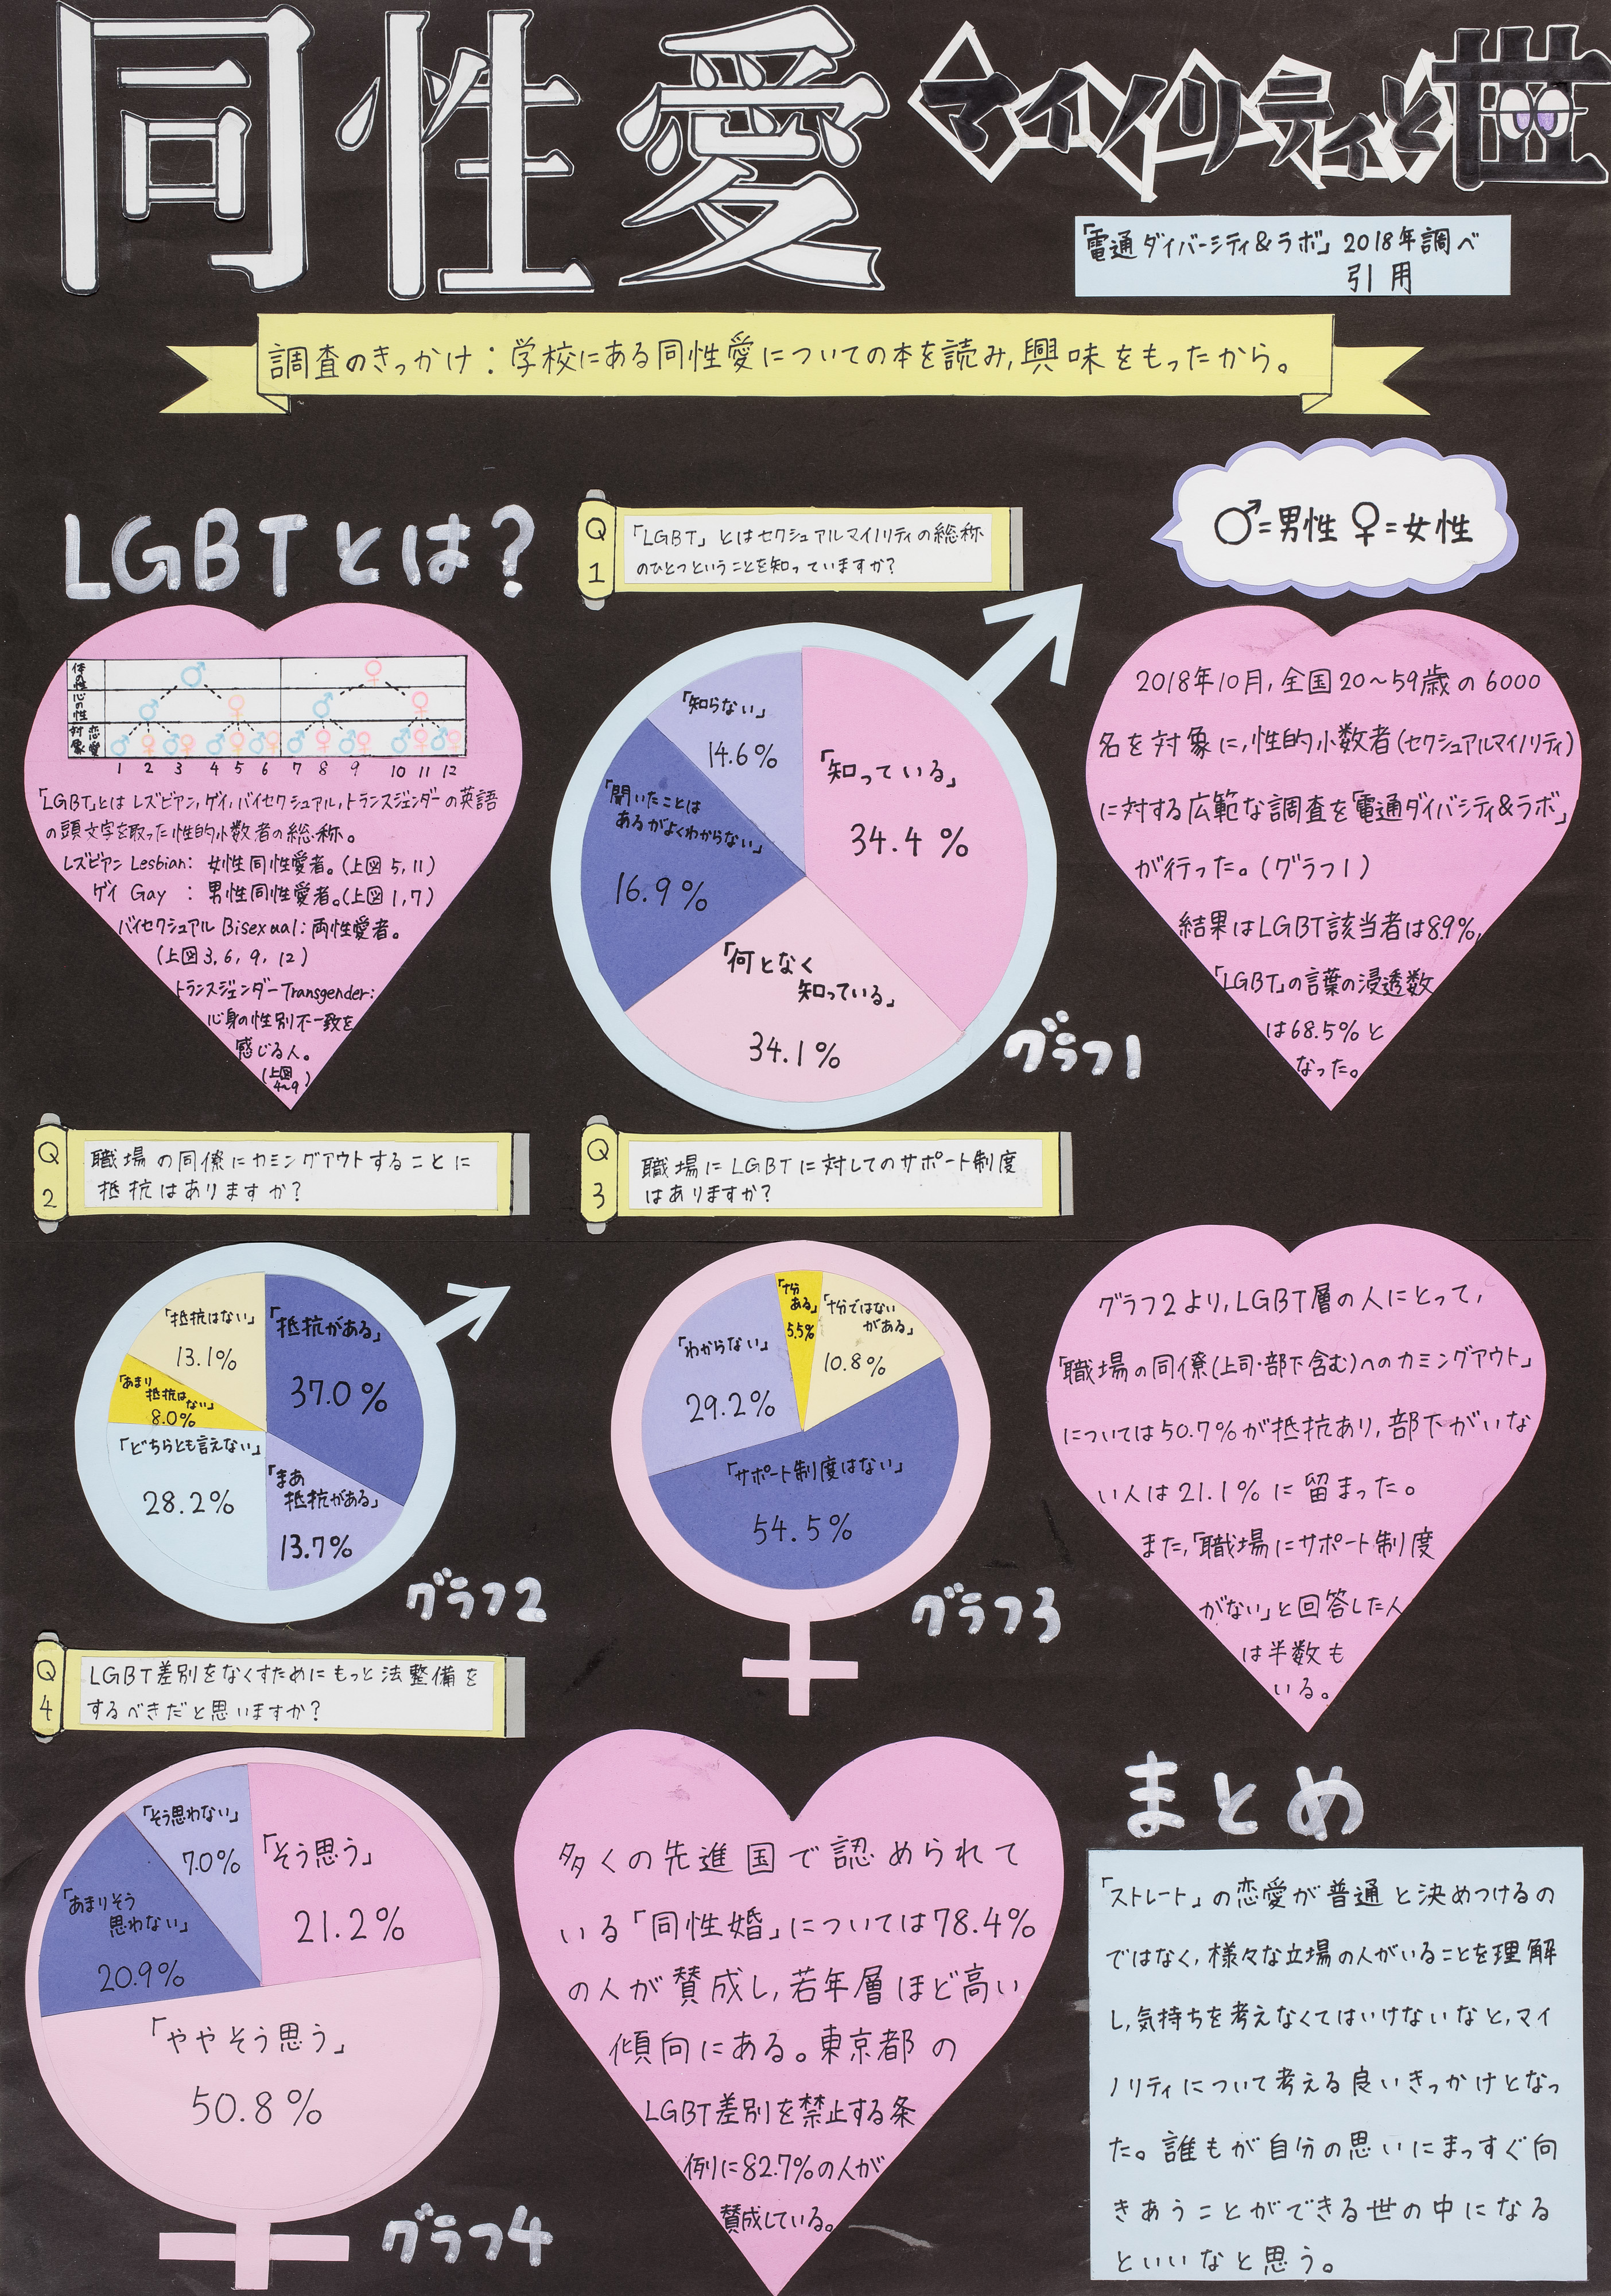 同性愛 マイノリティと世
「電通ダイバーシティ&ラボ」2018年調べ
引用
調査のきっかけ：学校にある同性愛についての本を読み,興味をもったから。
LGBTとは？
体の性
心の性
恋愛対象
1 2 3 4 5 6 7 8 9 10 11 12
「LGBT」とはレズビアン,ゲイ,バイセクシュアル,トランスジェンダーの英語
の頭文字を取った性的小数者の総称。
レズビアン Lesbian: 女性同性愛者。(上図5,11)
ゲイ Gay : 男性同性愛者。(上図1,7)
バイセクシュアル Bisexual: 両性愛者。
(上図3,6,9,12)
トランスジェンダー Transgender:
心身の性別不一致を
感じる人。
(上図
4〜9)
Q1
「LGBT」とはセクシュアルマイノリティの総称
のひとつということを知っていますか?
♂=男性 ♀=女性
「知っている」
34.4%
「何となく
知っている」
34.1%
「聞いたことは
あるがよくわからない」
16.9%
「知らない」
14.6%
グラフ1
2018年10月,全国20〜59歳の6000
名を対象に,性的小数者(セクシュアルマイノリティ)
に対する広範な調査を「電通ダイバシティ&ラボ」
が行った。(グラフ1)
結果はLGBT該当者は8.9%,
「LGBT」の言葉の浸透数
は68.5%と
なった。
Q2
職場の同僚にカミングアウトすることに
抵抗はありますか?
「抵抗がある」
37.0%
「まあ
抵抗がある」
13.7%
「どちらとも言えない」
28.2%
「あまり
抵抗は
ない」
8.0%
「抵抗はない」
13.1%
グラフ2
Q3
職場にLGBTに対してのサポート制度
はありますか?
「十分
ある」
5.5%
「十分ではない
がある」
10.8%
「サポート制度はない」
54.5%
「わからない」
29.2%
グラフ3
グラフ2より,LGBT層の人にとって,
「職場の同僚(上司・部下含む)へのカミングアウト」
については50.7%が抵抗あり,部下がいな
い人は21.1%に留まった。
また,「職場にサポート制度
がない」と回答した人
は半数も
いる。
Q4
LGBT差別をなくすためにもっと法整備を
するべきだと思いますか?
「そう思う」
21.2%
「ややそう思う」
50.8%
「あまりそう
思わない」
20.9%
「そう思わない」
7.0%
グラフ4
多くの先進国で認められて
いる「同性婚」については78.4%
の人が賛成し,若年層ほど高い
傾向にある。東京都の
LGBT差別を禁止する条
例に82.7%の人が
賛成している。
まとめ
「ストレート」の恋愛が普通と決めつけるの
ではなく,様々な立場の人がいることを理解
し,気持ちを考えなくてはいけないなと,マイ
ノリティについて考える良いきっかけとなっ
た。誰もが自分の思いにまっすぐ向
きあうことができる世の中になる
といいなと思う。